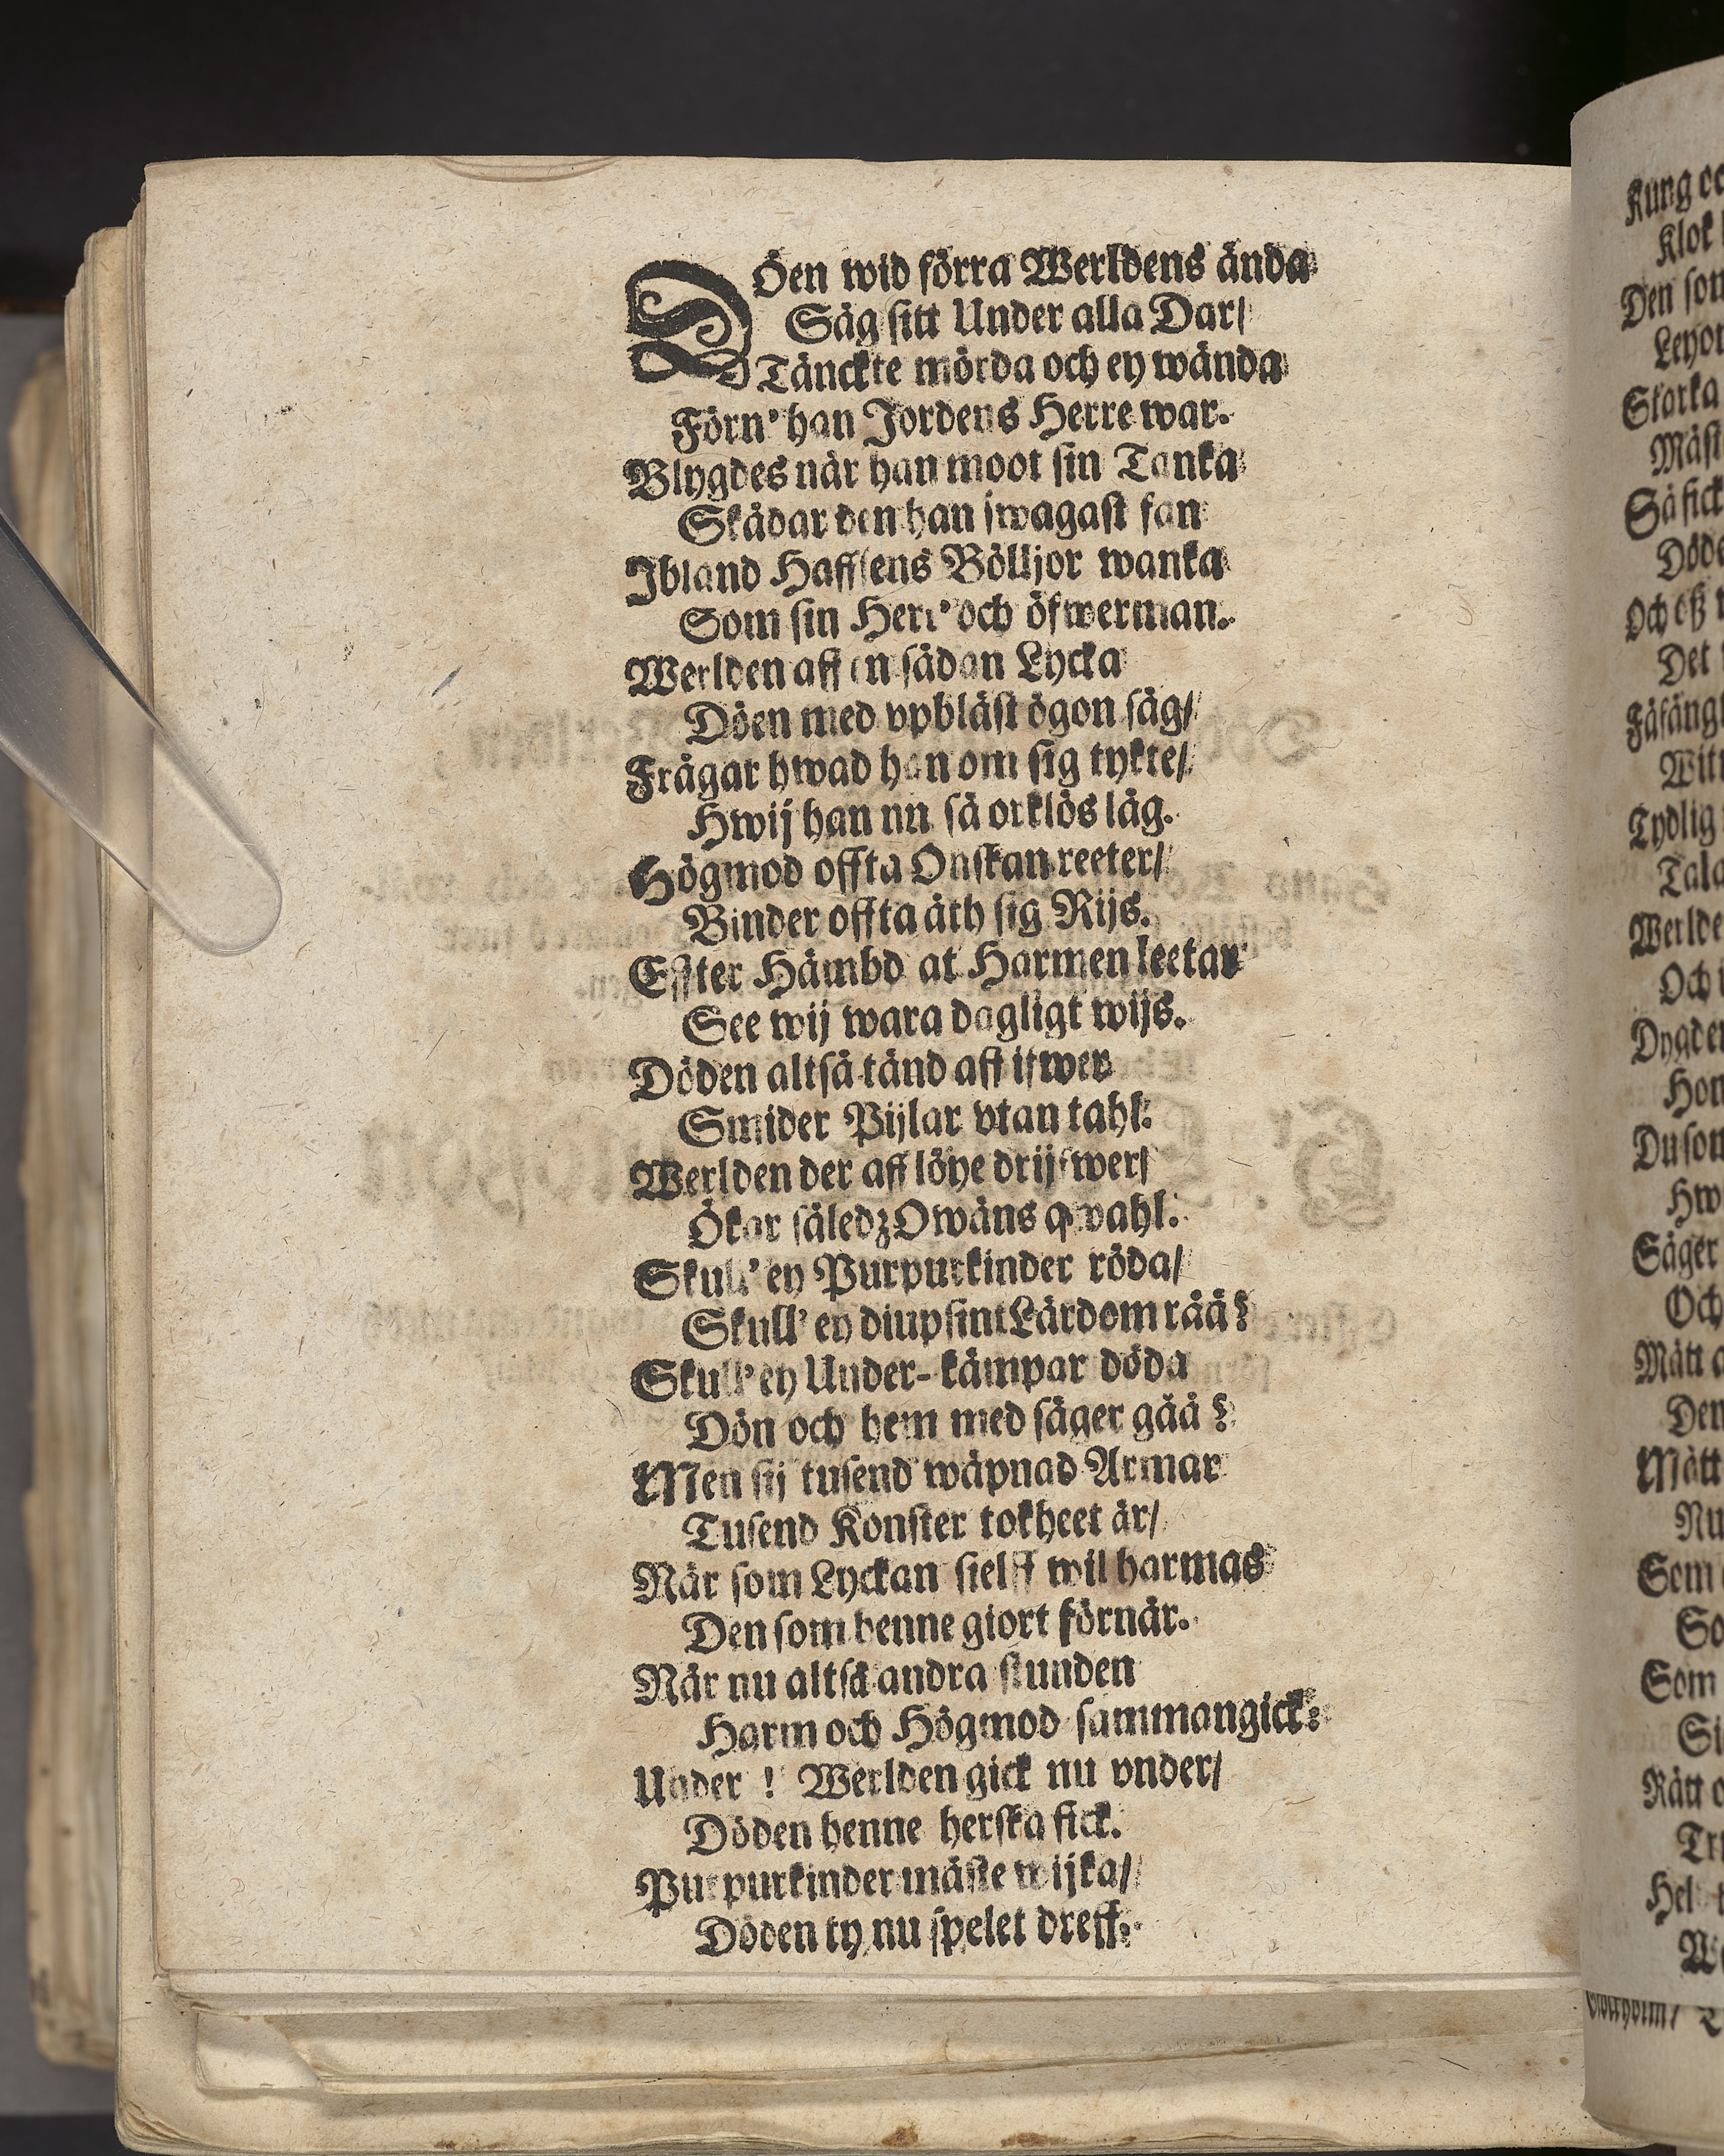 Döen wid förra Werldens ända
Såg sitt Under alla Dar/
Tänckte mörda och ey wända
Förn' han Jordens Herre war.
Blygdes när han moot sin Tanka
Skådar den han swagast fan
Ibland Haffsens Bölljor wanka
Som sin Herr' och öfwerman.
Werlden aff en sådan Lycka
Döen med vpblåst ögon såg/
Frågar hwad han om sig tykte/
Hwij han nu så orklös låg.
Högmod offta Onskan reeter/
Binder offta åth sig Rijs.
Effter Hämbd at Harmen leetar
See wij wara dagligt wijs.
Döden altså tänd aff ifwer
Smider Pijlar vtan tahl:
Werlden der aff löye drijfwer/
Ökar såledz Owäns qwahl.
Skull' ey Purpurkinder röda/
Skull' ey diupsint Lärdom råå?
Skull' ey Under-kämpar döda
Dön och hem med säger gåå?
Men sij tusend wäpnad Armar
Tusend Konster tokheet är/
När som Lyckan sielff wil harmas
Den som henne giort förnär.
När nu altså andra stunden
Harm och Högmod sammangick:
Under ! Werlden gick nu vnder/
Döden henne herska fick.
Purpurkinder måste wijka/
Döden ty nu spelet dreff:
Kung
Klok
Den som
Leyon
Starka
Måst
Så fick
Döde
Och oß
Det
Fåfäng
Witt
Tydlig
Tala
Werlde
Och i
Dygden
Hon
Du som
Hw
Säger
Och
Mått
Den
Mått
Nu
Som
So
Som
Si
Rätt
Hel